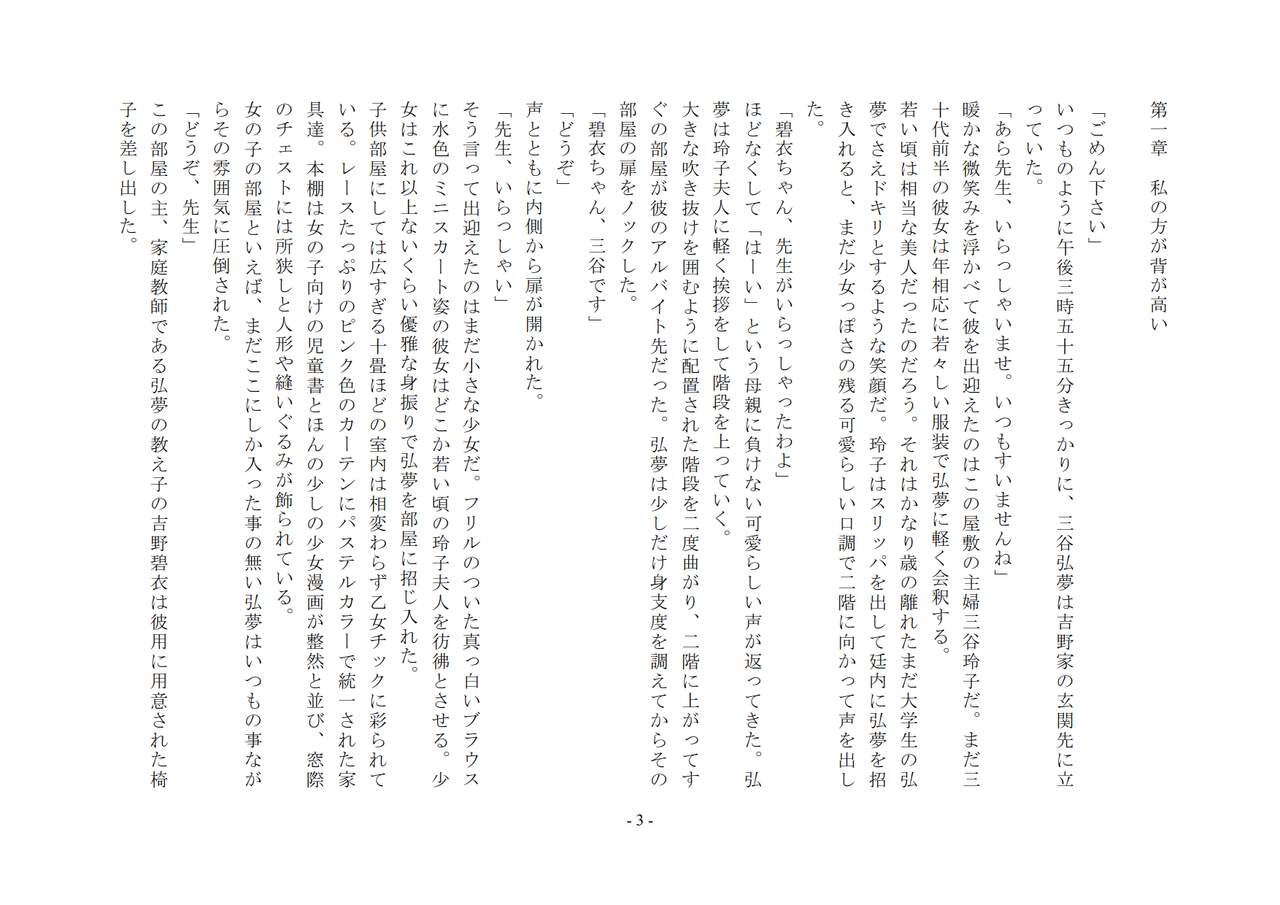 第一章　私の方が背が高い
「ごめん下さい」
いつものように午後三時五十五分きっかりに、三谷弘夢は吉野家の玄関先に立
っていた。
「あら先生、いらっしゃいませ。いつもすいませんね」
暖かな微笑みを浮かべて彼を出迎えたのはこの屋敷の主婦三谷玲子だ。まだ三
十代前半の彼女は年相応に若々しい服装で弘夢に軽く会釈する。
若い頃は相当な美人だったのだろう。それはかなり歳の離れたまだ大学生の弘
夢でさえドキリとするような笑顔だ。玲子はスリッパを出して廷内に弘夢を招
き入れると、まだ少女っぽさの残る可愛らしい口調で二階に向かって声を出し
た。
「碧衣ちゃん、先生がいらっしゃったわよ」
ほどなくして「はーい」という母親に負けない可愛らしい声が返ってきた。弘
夢は玲子夫人に軽く挨拶をして階段を上っていく。
大きな吹き抜けを囲むように配置された階段を二度曲がり、二階に上がってす
ぐの部屋が彼のアルバイト先だった。弘夢は少しだけ身支度を調えてからその
部屋の扉をノックした。
「碧衣ちゃん、三谷です」
「どうぞ」
声とともに内側から扉が開かれた。
「先生、いらっしゃい」
そう言って出迎えたのはまだ小さな少女だ。フリルのついた真っ白いブラウス
に水色のミニスカート姿の彼女はどこか若い頃の玲子夫人を彷彿とさせる。少
女はこれ以上ないくらい優雅な身振りで弘夢を部屋に招じ入れた。
子供部屋にしては広すぎる十畳ほどの室内は相変わらず乙女チックに彩られて
いる。レースたっぷりのピンク色のカーテンにパステルカラーで統一された家
具達。本棚は女の子向けの児童書とほんの少しの少女漫画が整然と並び、窓際
のチェストには所狭しと人形や縫いぐるみが飾られている。
女の子の部屋といえば、まだここにしか入った事の無い弘夢はいつもの事なが
らその雰囲気に圧倒された。
「どうぞ、先生」
この部屋の主、家庭教師である弘夢の教え子の吉野碧衣は彼用に用意された椅
子を差し出した。
- 3 -